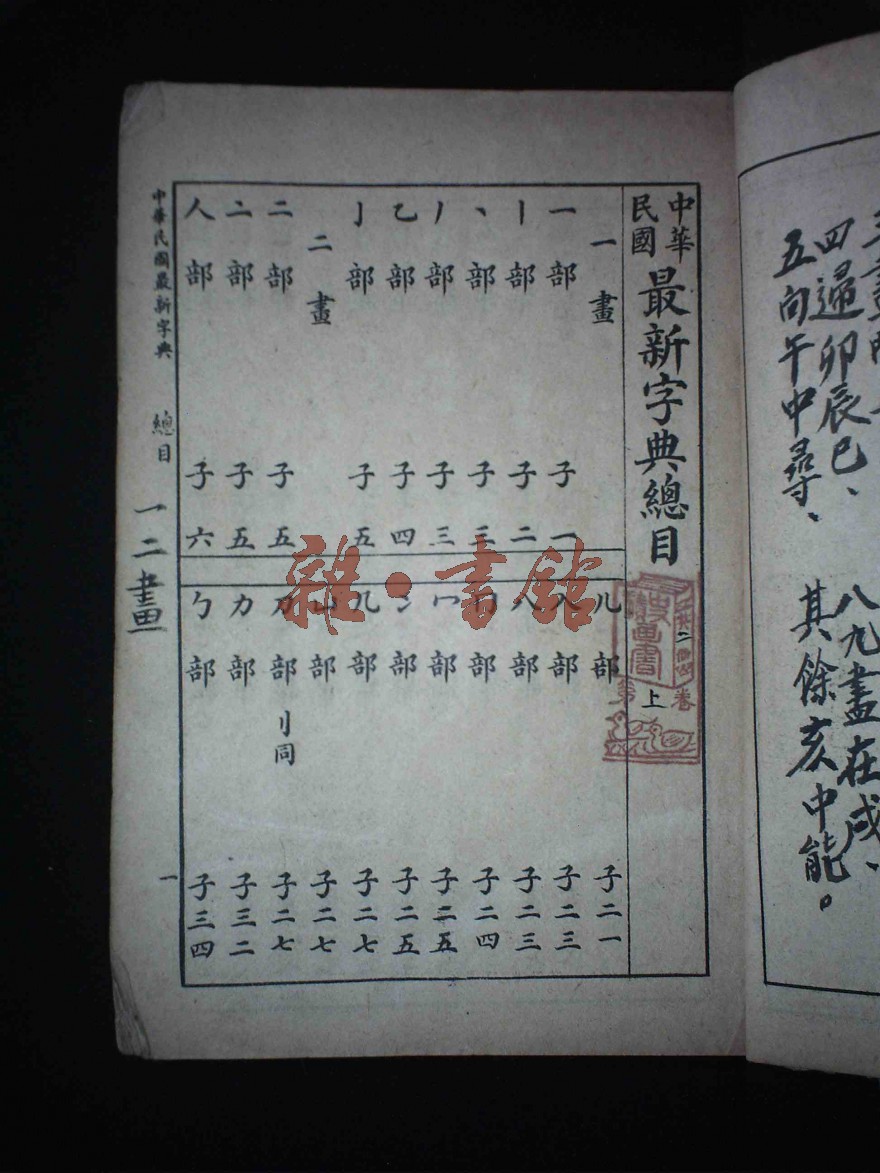 中華民國最新字典總目
上
一畫
一部 子一
丨部 子二
丶部 子三
丿部 子三
乙部 子四
亅部 子五
二畫
二部 子五
亠部 子五
人部 子六
儿部 子二一
入部 子二三
八部 子二三
冂部 子二四
冖部 子二五
冫部 子二五
几部 子二七
凵部 子二七
刀部 刂同 子二七
力部 子三二
勹部 子三四
中華民國最新字典 總目 一二畫 一
四歸卯辰巳、八九盡在戌、
五向午中尋、其餘亥中能。
雜·書館